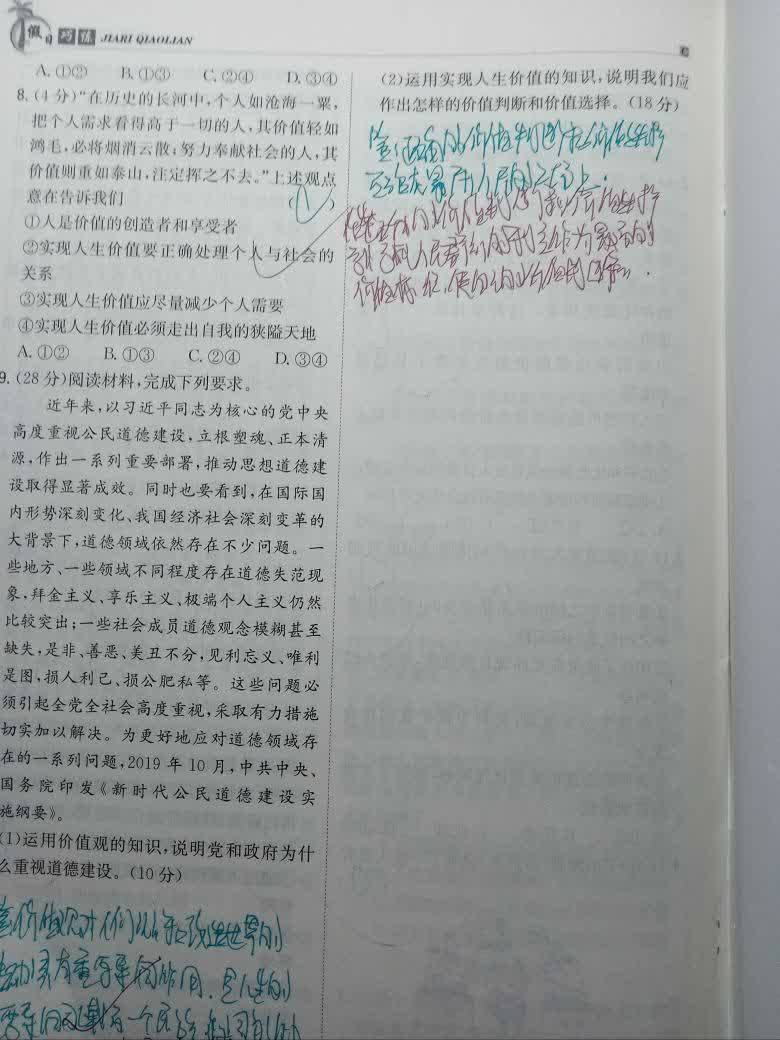 假日巧练 JIARI QIAOLIAN
A.①② B.①③ C.②④ D.③④
8.(4分)“在历史的长河中,个人如沧海一粟,
把个人需求看得高于一切的人,其价值轻如
鸿毛,必将烟消云散;努力奉献社会的人,其
价值则重如泰山,注定挥之不去。”上述观点
意在告诉我们 ( )
①人是价值的创造者和享受者
②实现人生价值要正确处理个人与社会的
关系
③实现人生价值应尽量减少个人需要
④实现人生价值必须走出自我的狭隘天地
A.①② B.①③ C.②④ D.③④
9.(28分)阅读材料,完成下列要求。
近年来,以习近平同志为核心的党中央
高度重视公民道德建设,立根塑魂、正本清
源,作出一系列重要部署,推动思想道德建
设取得显著成效。同时也要看到,在国际国
内形势深刻变化、我国经济社会深刻变革的
大背景下,道德领域依然存在不少问题。一
些地方、一些领域不同程度存在道德失范现
象,拜金主义、享乐主义、极端个人主义仍然
比较突出;一些社会成员道德观念模糊甚至
缺失,是非、善恶、美丑不分,见利忘义、唯利
是图,损人利己、损公肥私等。这些问题必
须引起全党全社会高度重视,采取有力措施
切实加以解决。为更好地应对道德领域存
在的一系列问题,2019年10月,中共中央、
国务院印发《新时代公民道德建设实
施纲要》。
(1)运用价值观的知识,说明党和政府为什
么重视道德建设。(10分)
答价值观对人们认识和改造世界的
活动具有重要导向作用,是人生的
(2)运用实现人生价值的知识,说明我们应
作出怎样的价值判断和价值选择。(18分)